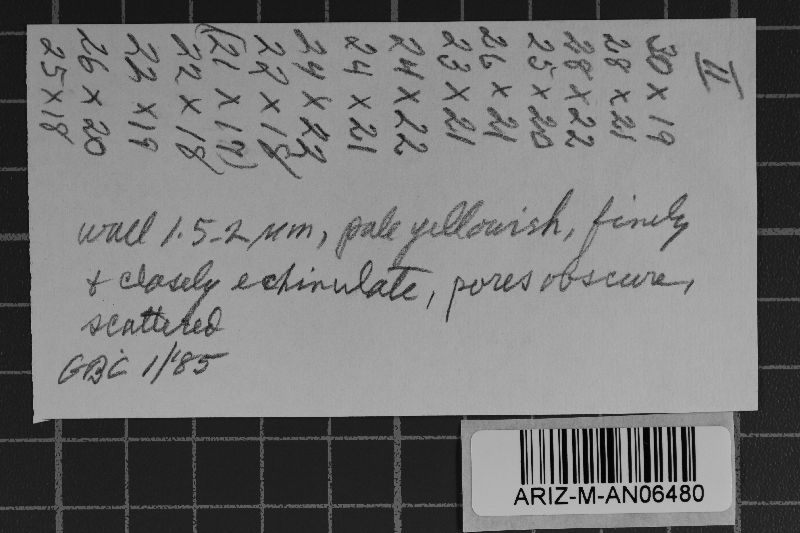 II
30 x 19
28 x 21
28 x 22
25 x 20
26 x 21
23 x 21
24 x 22
24 x 21
24 x 22
22 x 18
(21 x 17)
22 x 18
22 x 19
26 x 20
25 x 18
wall 1.5-2 µm, pale yellowish, finely
& closely echinulate, pores obscure,
scattered
GBC 1/'85
ARIZ-M-AN06480